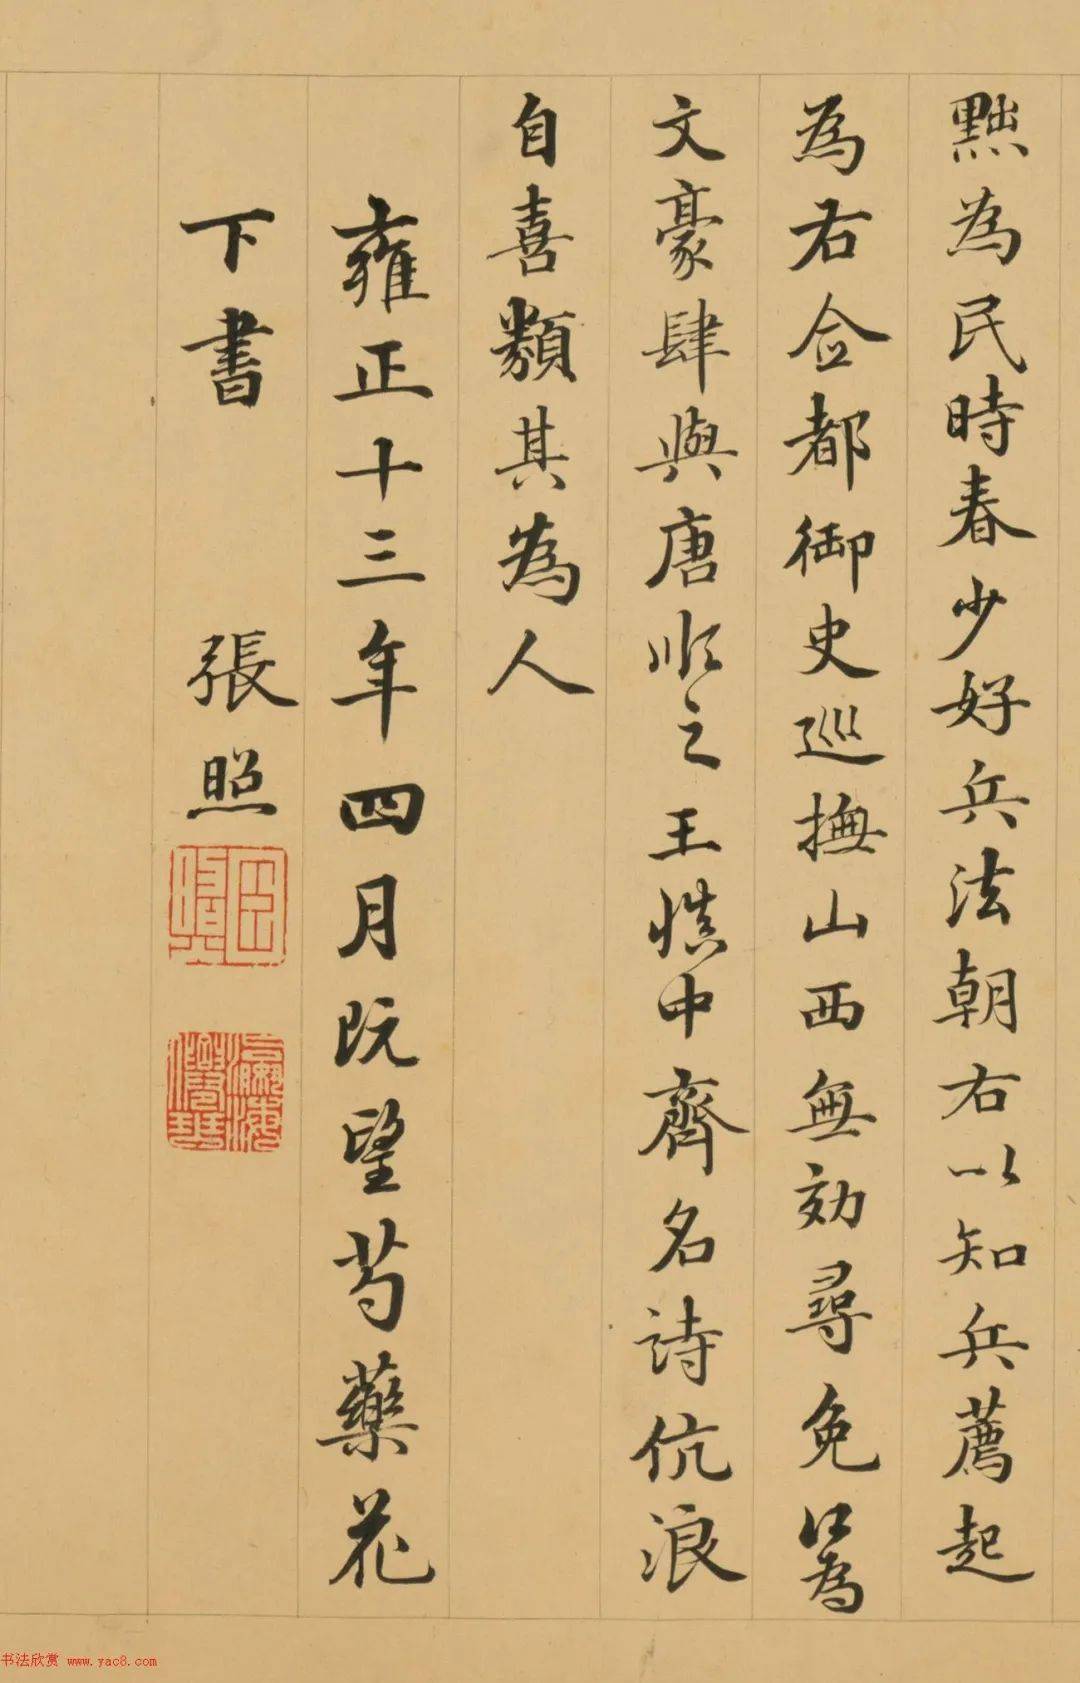 黜為民時春少好兵法朝右以知兵薦起
為右僉都御史巡撫山西無効尋免為
文豪肆與唐順之王慎中齊名詩伉浪
自喜類其為人
雍正十三年四月既望芍藥花
下書 張照
臣照
瀛海僊琴
书法欣赏 www.yac8.com